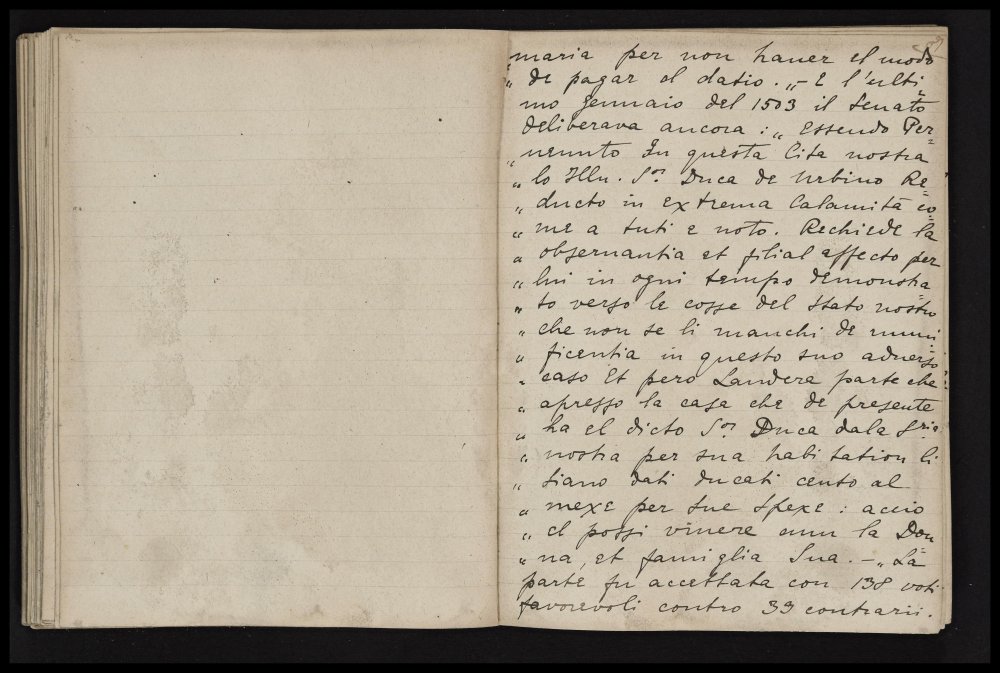 „ maria per non haver el modo
„ de pagar el datio. „ – E l'ulti=
mo Gennaio del 1503 il Senato
deliberava ancora: „ Essendo Per=
„ venuto In questa Cita nostra
„ lo Illu. Sor. Duca de Urbino Re=
„ ducto in extrema Calamità co=
„ me a tuti e noto. Rechiede la
„ observantia et filial affecto per
„ lui in ogni tempo demonstra
„ to verso le cosse del Stato nostro
„ che non se li manchi de muni=
„ ficentia in questo suo adverso
„ caso Et pero Landera parte che
„ apresso la casa che de presente
„ ha el dicto Sor. Duca dala Sria
„ nostra per sua habitation li
„ siano dati ducati cento al
„ mexe per sue spexe: acciò
„ el possi vivere cum la Don
„ na, et famiglia Sua. – „ La
parte fu accettata con 138 voti
favorevoli contro 39 contrarii.